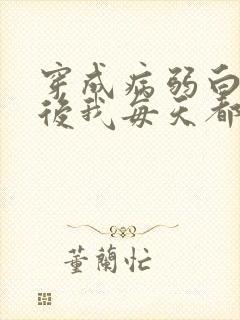 穿成病弱白
後我每天都
董蘭忙